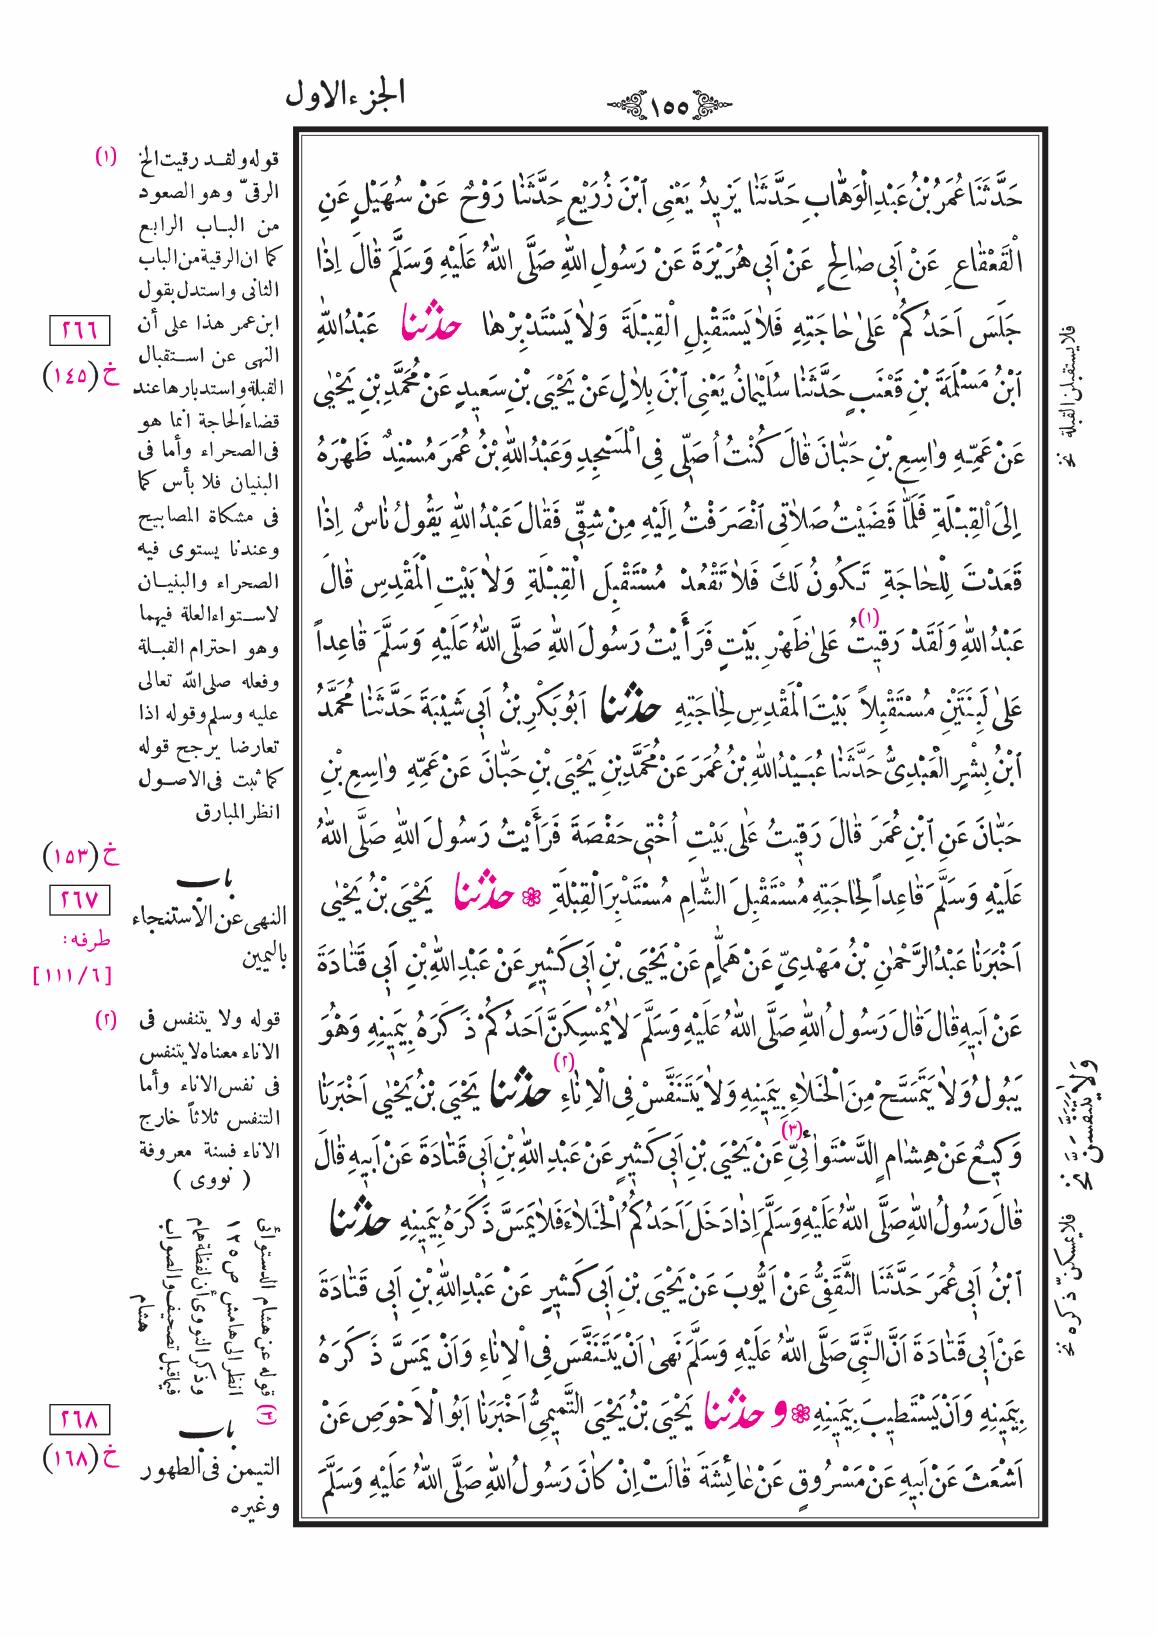 الجزء الاول
١٥٥
حَدَّثَنَا عُمَرُ بْنُ عَبْدِ الْوَهَّابِ حَدَّثَنَا يَزِيدُ يَعْنِى ابْنَ زُرَيْعٍ حَدَّثَنَا رَوْحٌ عَنْ سُهَيْلٍ عَنِ
الْقَعْقَاعِ عَنْ أَبِى صَالِحٍ عَنْ أَبِى هُرَيْرَةَ عَنْ رَسُولِ اللّٰهِ صَلَّى اللّٰهُ عَلَيْهِ وَسَلَّمَ قَالَ إِذَا
جَلَسَ اَحَدُكُمْ عَلَىٰ حَاجَتِهِ فَلَا يَسْتَقْبِلِ الْقِبْلَةَ وَلَا يَسْتَدْبِرْهَا حدثنا عَبْدُاللّٰهِ
ابْنُ مَسْلَمَةَ بْنِ قَعْنَبٍ حَدَّثَنَا سُلَيْمَانُ يَعْنِى ابْنَ بِلَالٍ عَنْ يَحْيَى بْنِ سَعِيدٍ عَنْ مُحَمَّدِ بْنِ يَحْيٰى
عَنْ عَمِّهِ وَاسِعِ بْنِ حَبَّانَ قَالَ كُنْتُ اُصَلِّى فِى الْمَسْجِدِ وَعَبْدُ اللّٰهِ بْنُ عُمَرَ مُسْنِدٌ ظَهْرَهُ
إِلَى الْقِبْلَةِ فَلَمَّا قَضَيْتُ صَلَاتِى انْصَرَفْتُ إِلَيْهِ مِنْ شِقِّى فَقَالَ عَبْدُ اللّٰهِ يَقُولُ نَاسٌ إِذَا
قَعَدْتَ لِلْحَاجَةِ تَكُونُ لَكَ فَلَا تَقْعُدْ مُسْتَقْبِلَ الْقِبْلَةِ وَلَا بَيْتِ الْمَقْدِسِ قَالَ
عَبْدُ اللّٰهِ وَلَقَدْ رَقِيتُ (١) عَلَىٰ ظَهْرِ بَيْتٍ فَرَأَيْتُ رَسُولَ اللّٰهِ صَلَّى اللّٰهُ عَلَيْهِ وَسَلَّمَ قَاعِداً
عَلَىٰ لَبِنَتَيْنِ مُسْتَقْبِلاً بَيْتَ الْمَقْدِسِ لِحَاجَتِهِ حدثنا اَبُو بَكْرِ بْنُ اَبِى شَيْبَةَ حَدَّثَنَا مُحَمَّدُ
ابْنُ بِشْرٍ الْعَبْدِىُّ حَدَّثَنَا عُبَيْدُ اللّٰهِ بْنُ عُمَرَ عَنْ مُحَمَّدِ بْنِ يَحْيَى بْنِ حَبَّانَ عَنْ عَمِّهِ وَاسِعِ بْنِ
حَبَّانَ عَنِ ابْنِ عُمَرَ قَالَ رَقِيتُ عَلَىٰ بَيْتِ اُخْتِى حَفْصَةَ فَرَأَيْتُ رَسُولَ اللّٰهِ صَلَّى اللّٰهُ
عَلَيْهِ وَسَلَّمَ قَاعِداً لِحَاجَتِهِ مُسْتَقْبِلَ الشَّامِ مُسْتَدْبِرَ الْقِبْلَةِ ❁ حدثنا يَحْيَى بْنُ يَحْيٰى
اَخْبَرَنَا عَبْدُ الرَّحْمٰنِ بْنُ مَهْدِىٍّ عَنْ هَمَّامٍ عَنْ يَحْيَى بْنِ اَبِى كَثِيرٍ عَنْ عَبْدِ اللّٰهِ بْنِ اَبِى قَتَادَةَ
عَنْ اَبِيهِ قَالَ قَالَ رَسُولُ اللّٰهِ صَلَّى اللّٰهُ عَلَيْهِ وَسَلَّمَ لَا يُمْسِكَنَّ اَحَدُكُمْ ذَكَرَهُ بِيَمِينِهِ وَهُوَ
يَبُولُ وَلَا يَتَمَسَّحْ مِنَ الْخَلَاءِ بِيَمِينِهِ وَلَا يَتَنَفَّسْ فِى الْاِنَاءِ (٢) حدثنا يَحْيَى بْنُ يَحْيٰى اَخْبَرَنَا
وَكِيعٌ عَنْ هِشَامٍ الدَّسْتَوَائِىِّ (٣) عَنْ يَحْيَى بْنِ اَبِى كَثِيرٍ عَنْ عَبْدِ اللّٰهِ بْنِ اَبِى قَتَادَةَ عَنْ اَبِيهِ قَالَ
قَالَ رَسُولُ اللّٰهِ صَلَّى اللّٰهُ عَلَيْهِ وَسَلَّمَ اِذَا دَخَلَ اَحَدُكُمُ الْخَلَاءَ فَلَا يَمَسَّ ذَكَرَهُ بِيَمِينِهِ حدثنا
ابْنُ اَبِى عُمَرَ حَدَّثَنَا الثَّقَفِىُّ عَنْ اَيُّوبَ عَنْ يَحْيَى بْنِ اَبِى كَثِيرٍ عَنْ عَبْدِ اللّٰهِ بْنِ اَبِى قَتَادَةَ
عَنْ اَبِى قَتَادَةَ اَنَّ النَّبِىَّ صَلَّى اللّٰهُ عَلَيْهِ وَسَلَّمَ نَهٰى اَنْ يَتَنَفَّسَ فِى الْاِنَاءِ وَاَنْ يَمَسَّ ذَكَرَهُ
بِيَمِينِهِ وَاَنْ يَسْتَطِيبَ بِيَمِينِهِ ❁ و حدثنا يَحْيَى بْنُ يَحْيَى التَّمِيمِىُّ اَخْبَرَنَا اَبُو الْاَحْوَصِ عَنْ
اَشْعَثَ عَنْ اَبِيهِ عَنْ مَسْرُوقٍ عَنْ عَائِشَةَ قَالَتْ اِنْ كَانَ رَسُولُ اللّٰهِ صَلَّى اللّٰهُ عَلَيْهِ وَسَلَّمَ
(١) قوله ولقد رقيت الخ
الرقىّ وهو الصعود
من الباب الرابع
كما ان الرقية من الباب
الثانى واستدل بقول
ابن عمر هذا على أن
النهى عن استقبال
القبلة واستدبارها عند
قضاء الحاجة انما هو
فى الصحراء وأما فى
البنيان فلا بأس كما
فى مشكاة المصابيح
وعندنا يستوى فيه
الصحراء والبنيان
لاستواء العلة فيهما
وهو احترام القبلة
وفعله صلى الله تعالى
عليه وسلم وقوله اذا
تعارضا يرجح قوله
كما ثبت فى الاصول
انظر المبارق
٢٦٦
خ (١٤٥)
خ (١٥٣)
٢٦٧
طرفه:
[١١١/٦]
باب
النهى عن الاستنجاء
باليمين
(٢) قوله ولا يتنفس فى
الاناء معناه لا يتنفس
فى نفس الاناء وأما
التنفس ثلاثاً خارج
الاناء فسنة معروفة
( نووى )
(٣) قوله عن هشام الدستوائى
انظر الى هامش ص ١٢٥
وذكر النووى أن لفظة همام
فيما قبل تصحيف والصواب
هشام
٢٦٨
خ (١٦٨)
باب
التيمن فى الطهور
وغيره
فلا يستقبلن القبلة نخ
وَلَا يتنفسن نخ
فلا يمسكنّ ذكره نخ